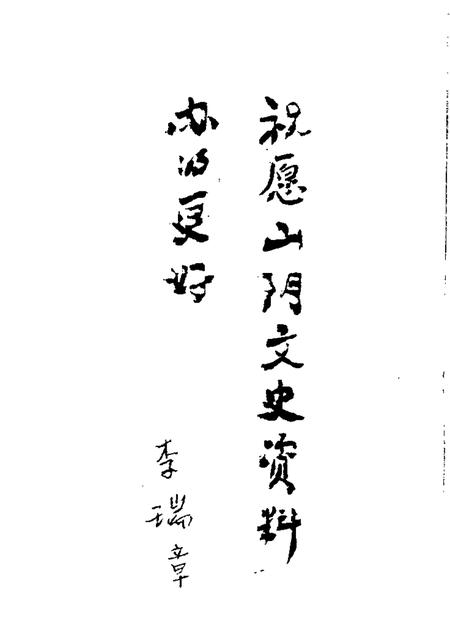 祝愿山阴文史资料
办的更好
李瑞章